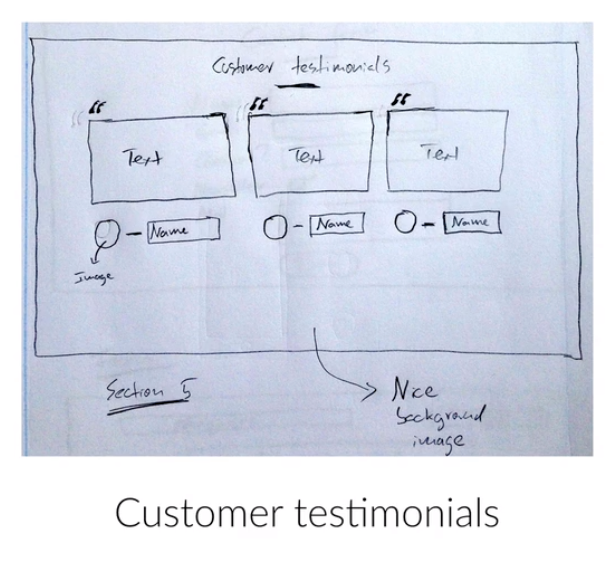 Customer testimonials
“ “ “
Text Text Text
Name Name Name
Image
Section 5
Nice
background
image
Customer testimonials